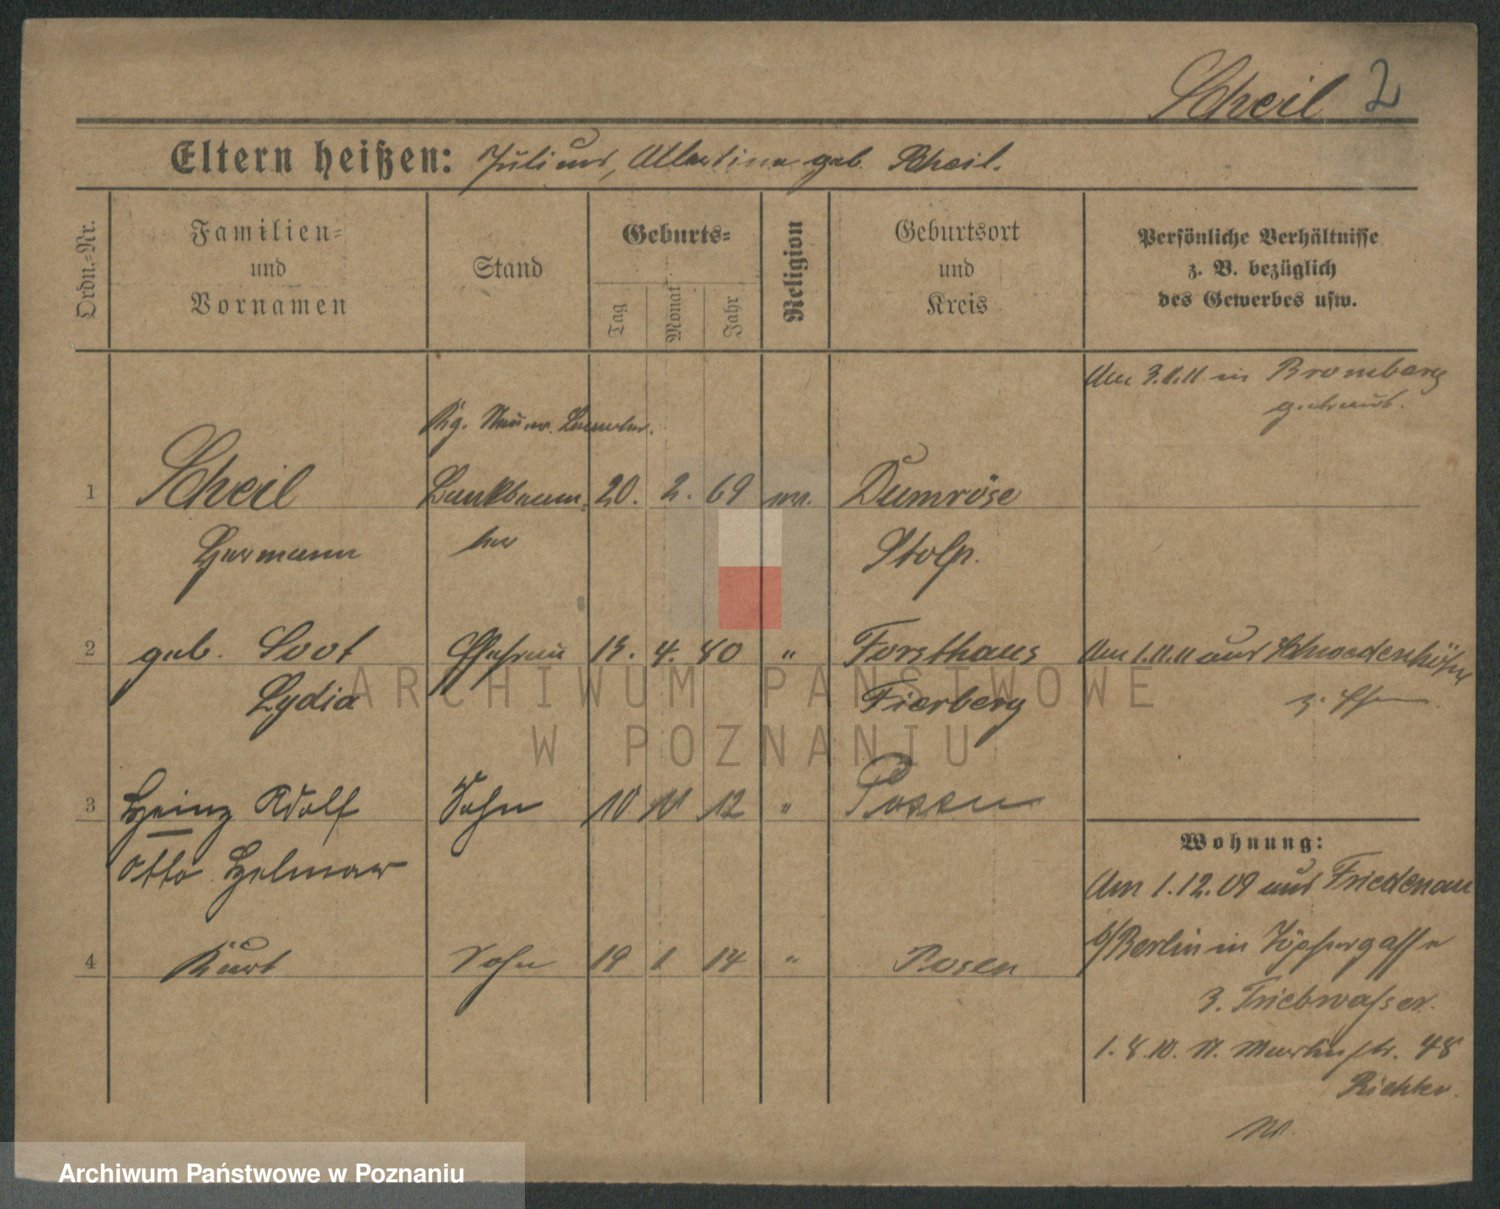 Scheil 2
Eltern heißen: Julius, Albertine geb. Scheil.
Ordn.-Nr.
Familien- und Vornamen
Stand
Geburts-
Tag
Monat
Jahr
Religion
Geburtsort und Kreis
Persönliche Verhältnisse
z. B. bezüglich
des Gewerbes usw.
Am 3.11.11 in Bromberg
getraut.
Kg.
1 Scheil Bankbeam- 20. 2. 69 ev. Dumröse
Hermann ter Stolp.
2 geb. Loot Ehefrau 13. 4. 80 " Forsthaus Am 1.11.11 aus Schwedenhöhe
Lydia Fierberg
3 Heinz Adolf Sohn 10 11 12 " Posen
Otto Helmar
4 Kurt Sohn 19 1 14 " Posen
Wohnung:
Am 1.12.09 aus Friedenau
b/Berlin in Töpfergasse
3. Triebwasser.
1.8.10. Martinstr. 48
Richter.
ARCHIWUM PAŃSTWOWE
W POZNANIU
Archiwum Państwowe w Poznaniu